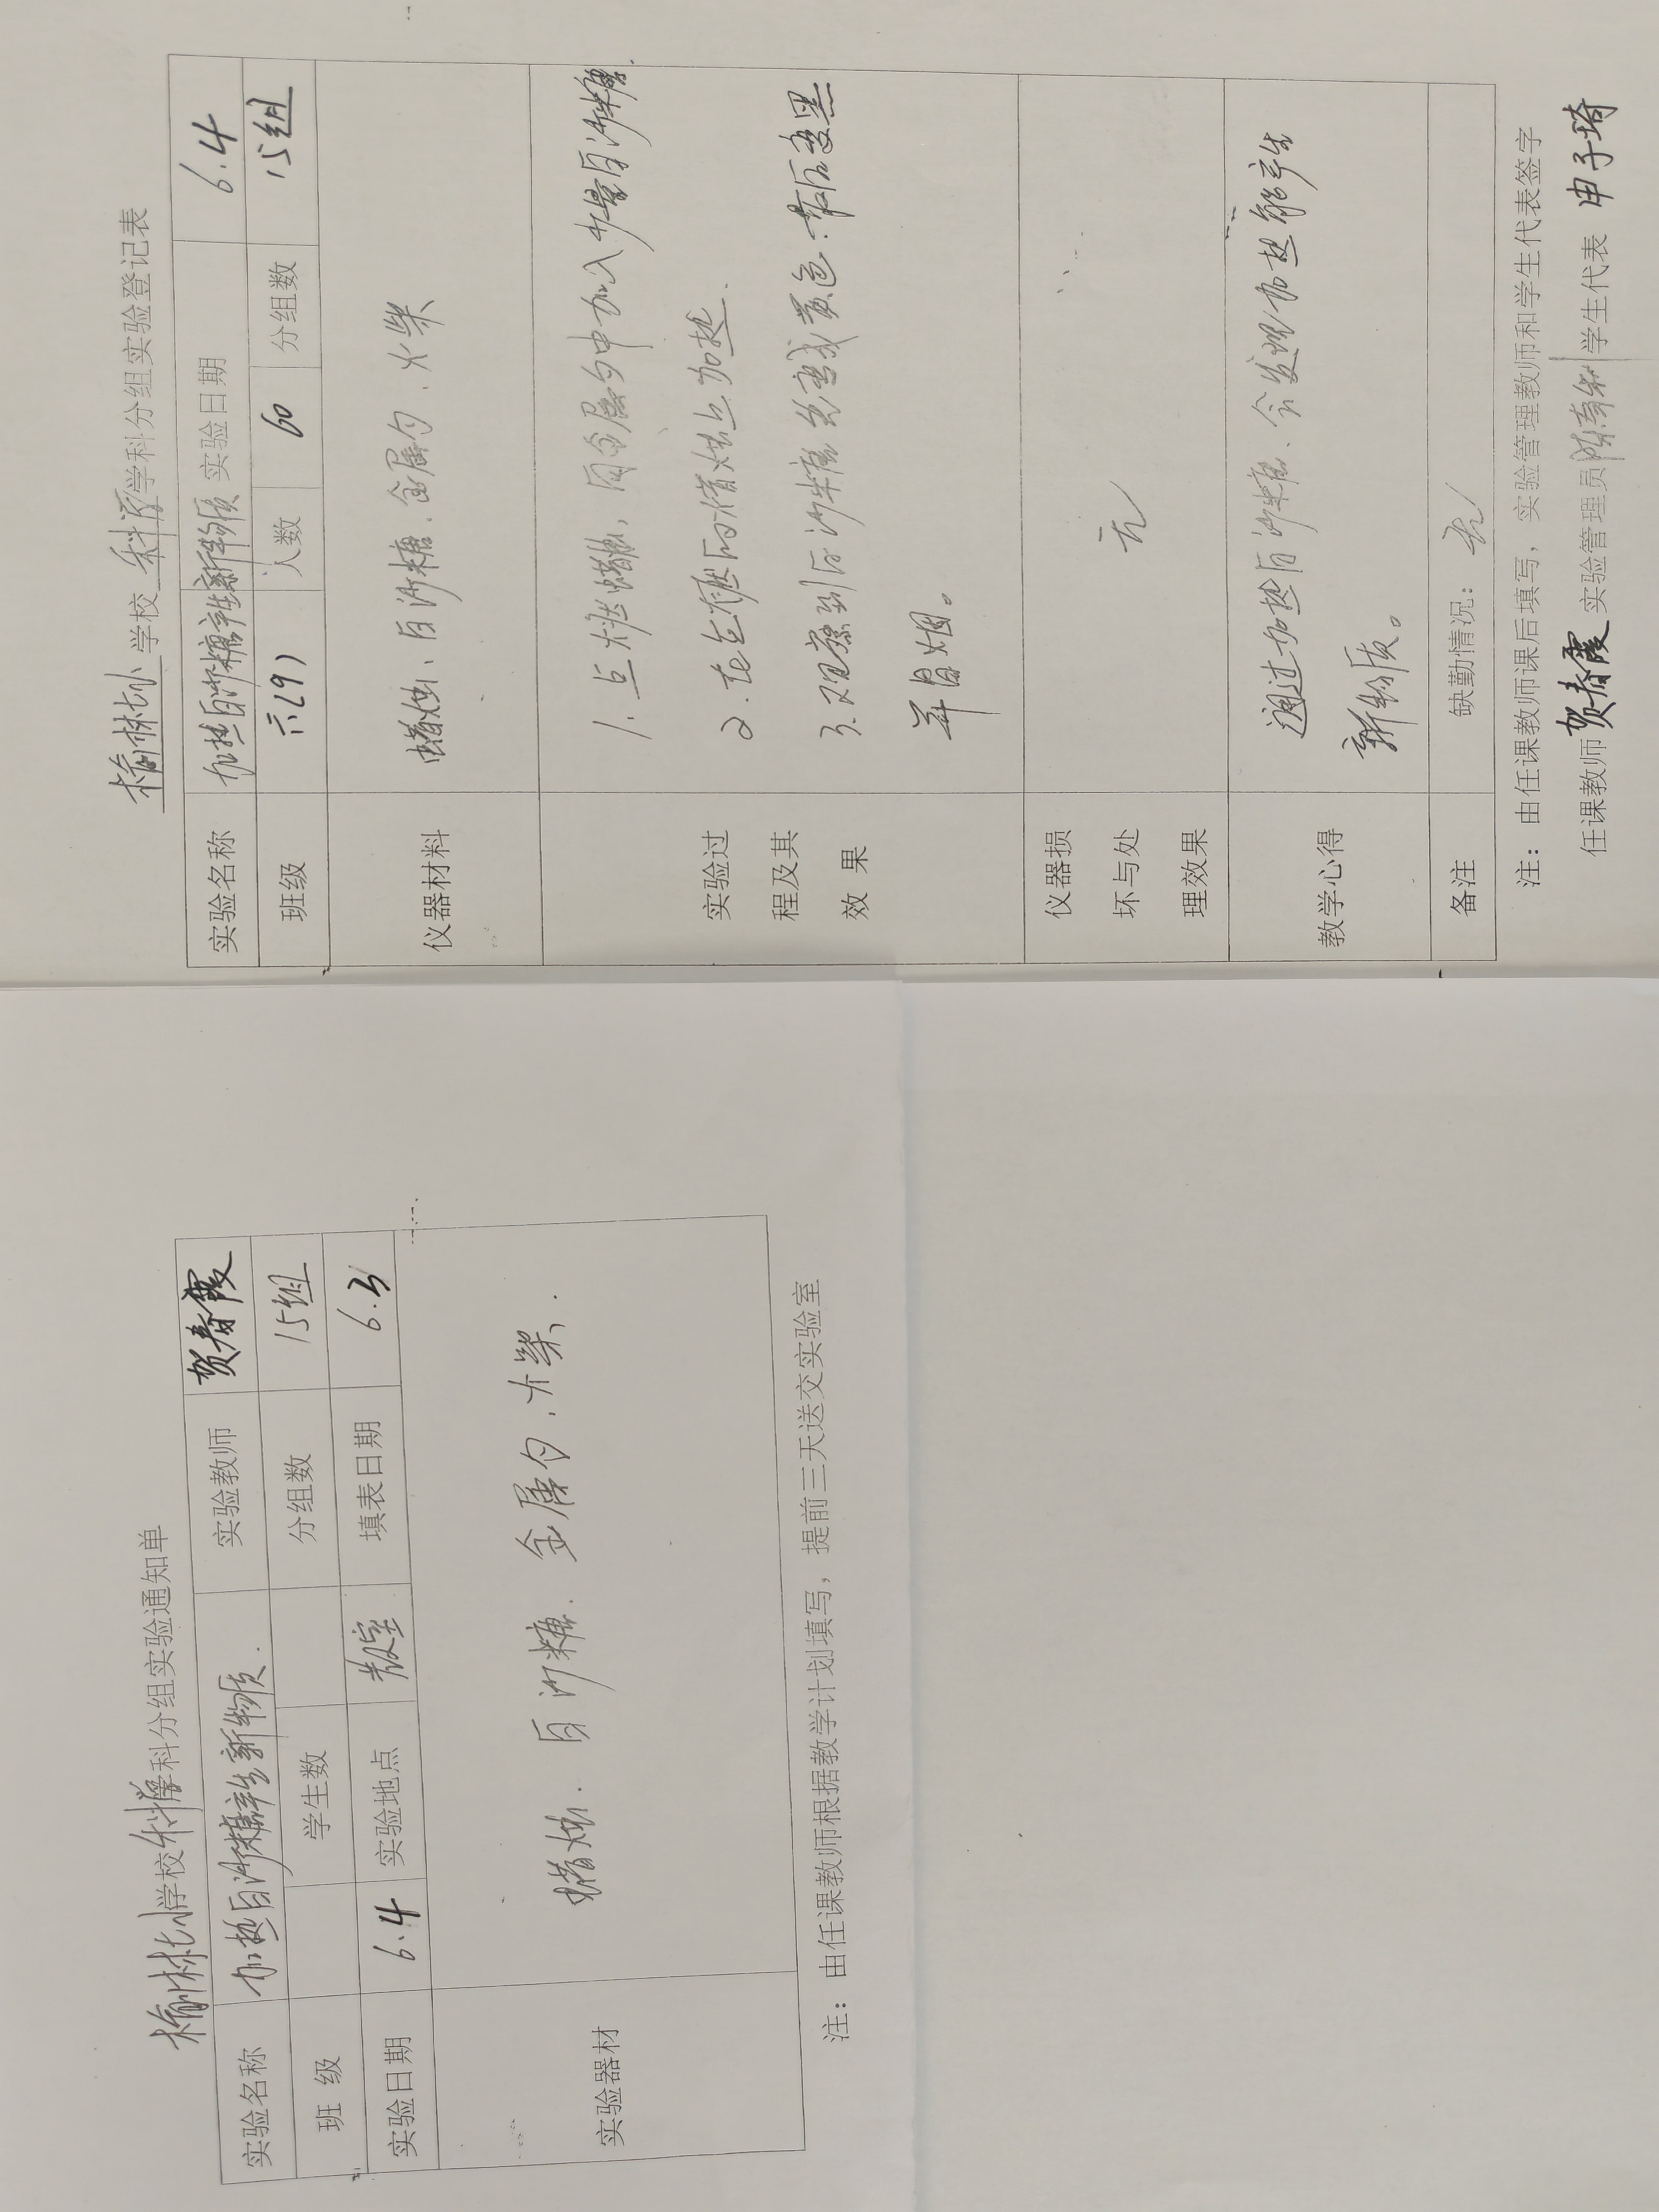 榆林北小学校科学科分组实验通知单
实验名称 加热白沙糖产生新物质. 实验教师 贺春霞
班 级 学生数 分组数 15组
实验日期 6.4 实验地点 教室 填表日期 6.3
实验器材 蜡烛. 白沙糖. 金属勺. 火柴.
注：由任课教师根据教学计划填写，提前三天送交实验室
榆林北小 学校 科学 学科分组实验登记表
实验名称 加热白沙糖产生新物质 实验日期 6.4
班级 六(9) 人数 60 分组数 15组
仪器材料 蜡烛、白沙糖.金属勺.火柴
实验过
程及其
效 果
1.点燃蜡烛, 向金属勺中加入少量白沙糖.
2.在点燃的蜡烛上加热.
3.观察到白沙糖 黄色.最后变黑
并冒烟。
仪器损
坏与处
理效果
无
教学心得
通过加热白沙糖、会发现加热能产生
新物质。
备注 缺勤情况： 无
注：由任课教师课后填写，实验管理教师和学生代表签字
任课教师 贺春霞 实验管理员 学生代表 申子琦